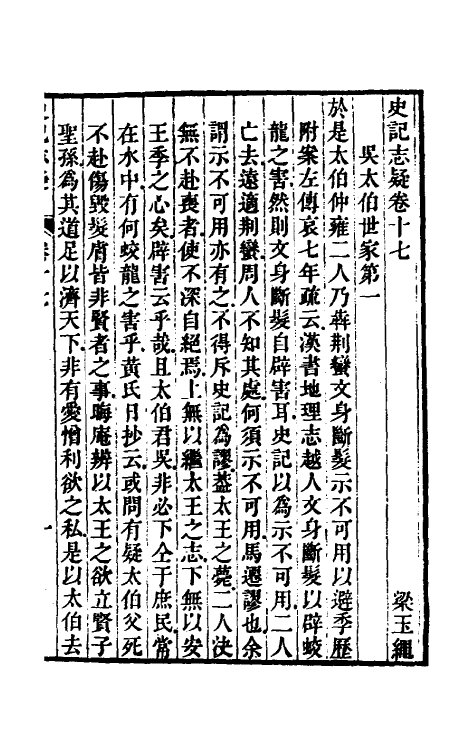 史記志疑卷十七
梁玉繩
吳太伯世家第一
於是太伯仲雍二人乃犇荆蠻文身斷髮示不可用以避季歷
附案左傳哀七年疏云漢書地理志越人文身斷髮以辟蛟
龍之害然則文身斷髮自辟害耳史記以為示不可用二人
亡去遠適荆蠻周人不知其處何須示不可用馬遷謬也余
謂示不可用亦有之不得斥史記為謬蓋太王之薨二人決
無不赴喪者使不深自絕焉上無以繼太王之志下無以安
王季之心矣辟害云乎哉且太伯君吳非必下仝于庶民常
在水中有何蛟龍之害乎黃氏日抄云或問有疑太伯父死
不赴傷毀髮膚皆非賢者之事晦庵辨以太王之欲立賢子
聖孫為其道足以濟天下非有愛憎利欲之私是以太伯去
卷十七
一